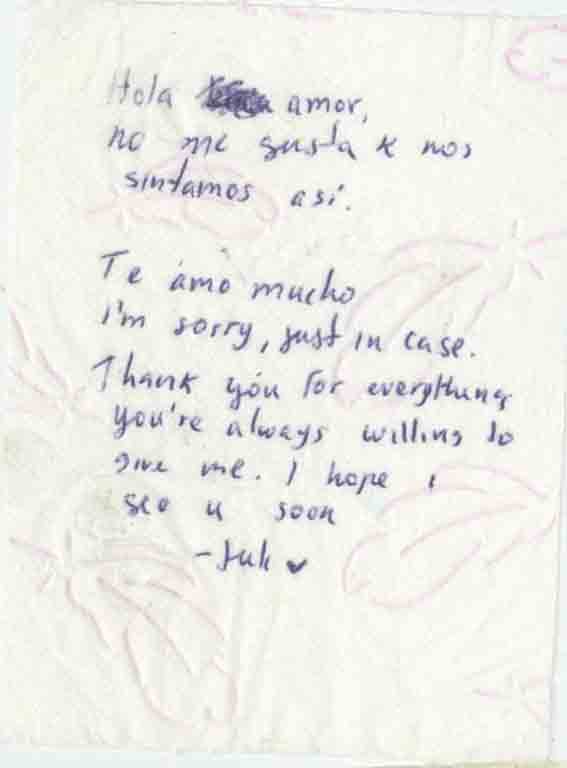 Hola amor,
no me gusta k nos
sintamos así.
Te amo mucho
I'm sorry, just in case.
Thank you for everything
you're always willing to
give me. I hope I
see u soon